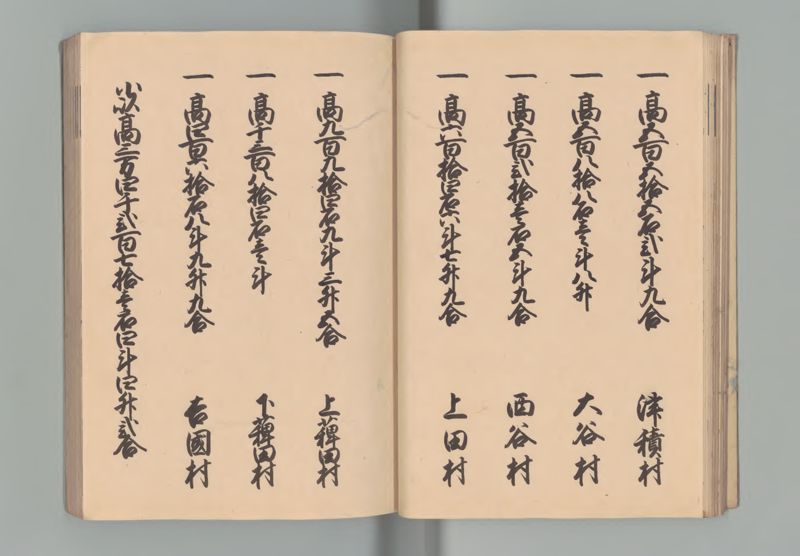 一 高五百五拾五石弐斗九合 津積村
一 高五百八拾八石壱斗八升 大谷村
一 高五百弐拾壱石五斗九合 西谷村
一 高六百拾四石六斗七升九合 上田村
一 高九百九拾四石九斗三升五合 上薭田村
一 高千三百八拾四石壱斗 下薭田村
一 高四百六拾石八斗九升九合 吉國村
高三万四千弐百七拾壱石四斗四升弐合